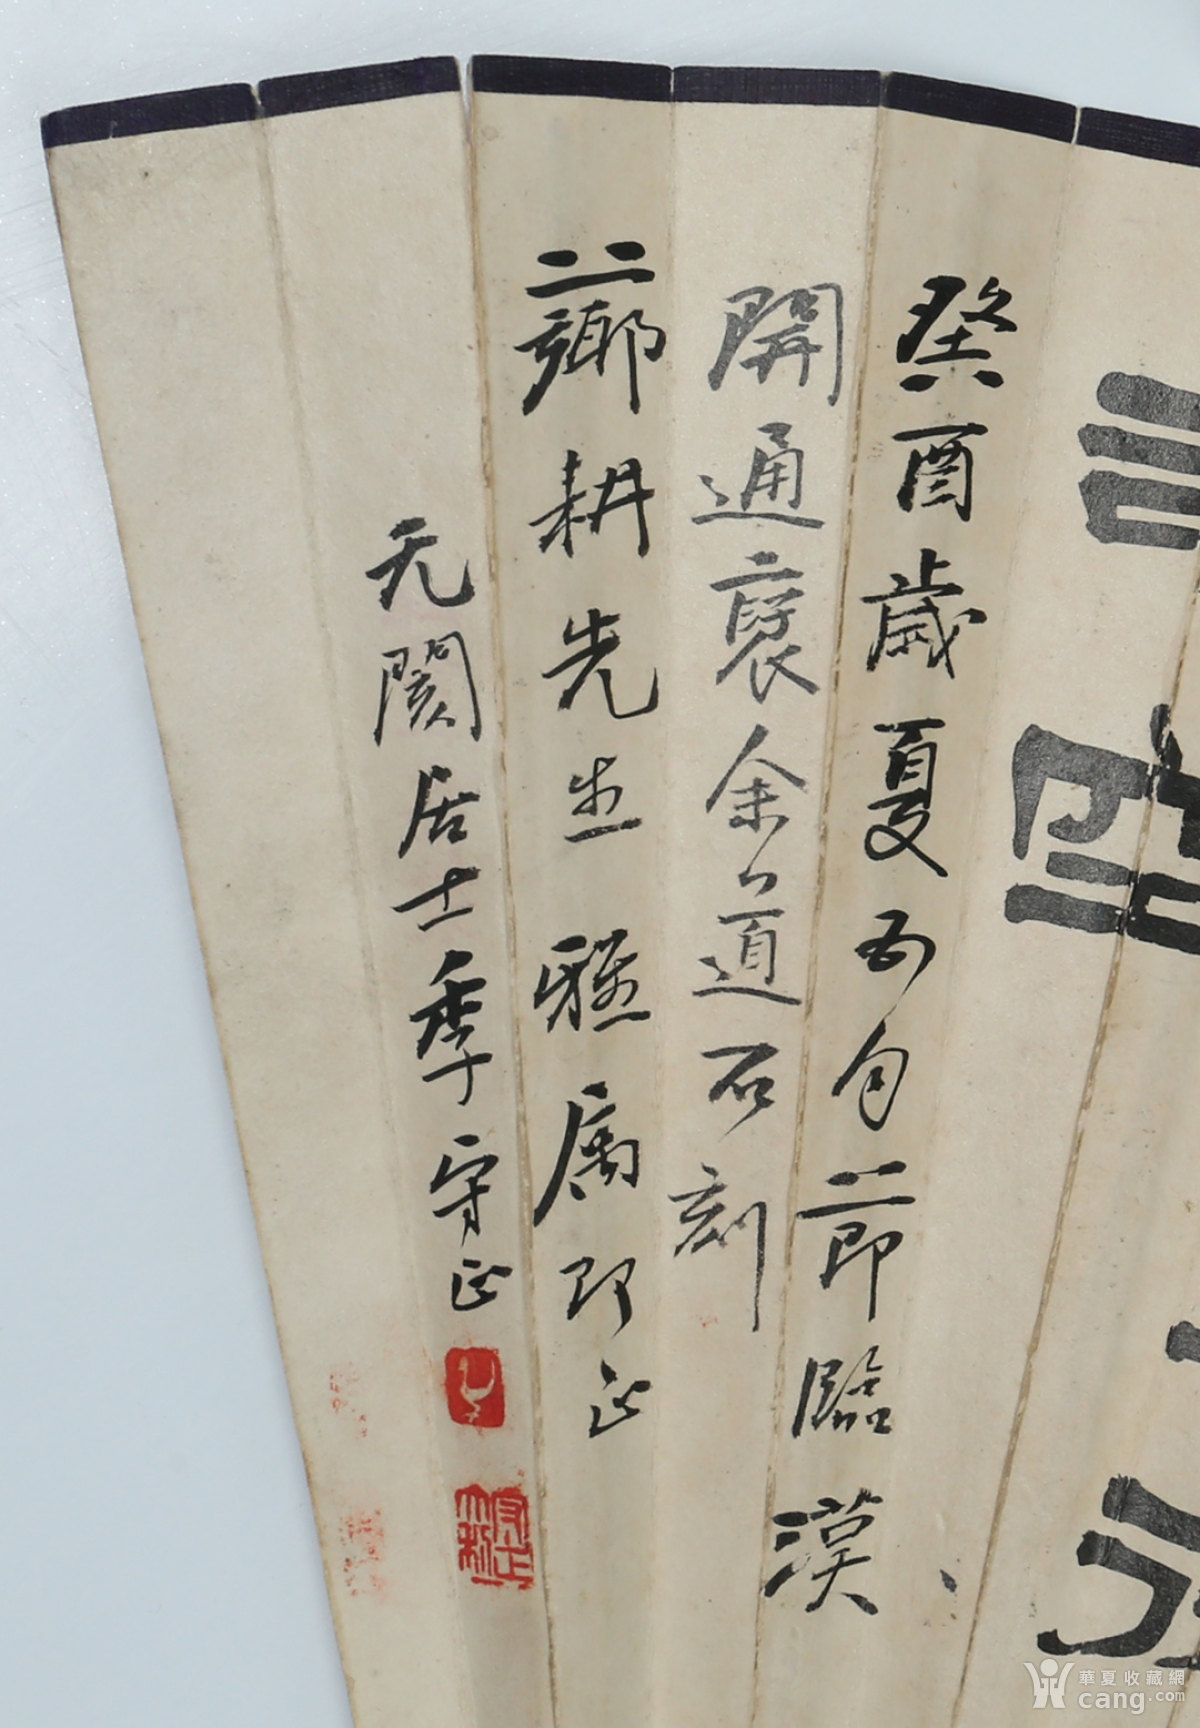 癸酉歲夏五月節臨漢
開通襃余道石刻
薌耕先生雅屬即正
无閡居士季守正
華夏收藏網
cang.com